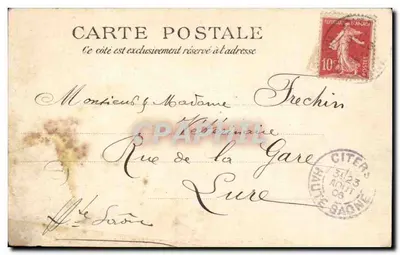 CARTE POSTALE
Ce côté est exclusivement réservé à l'adresse
Monsieur & Madame Frechin
Vétérinaire
Rue de la Gare
Lure
Hte Saône
10c
CITERS
23
AOUT
06
HAUTE-SAONE